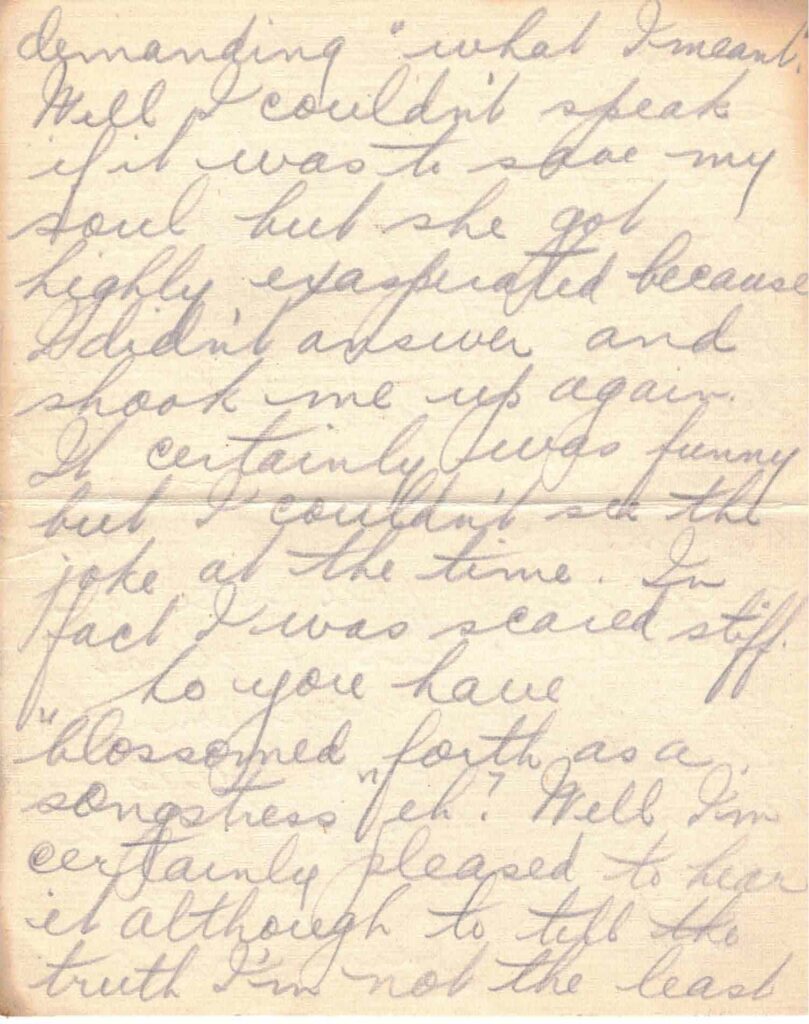 demanding "what I meant."
Well I couldn't speak
if it was to save my
soul but she got
highly exasperated because
I didn't answer and
shook me up again.
It certainly was funny
but I couldn't see the
joke at the time. In
fact I was scared stiff.
So you have
"blossomed forth as a
songstress" eh? Well I'm
certainly pleased to hear
it although to tell the
truth I'm not the least